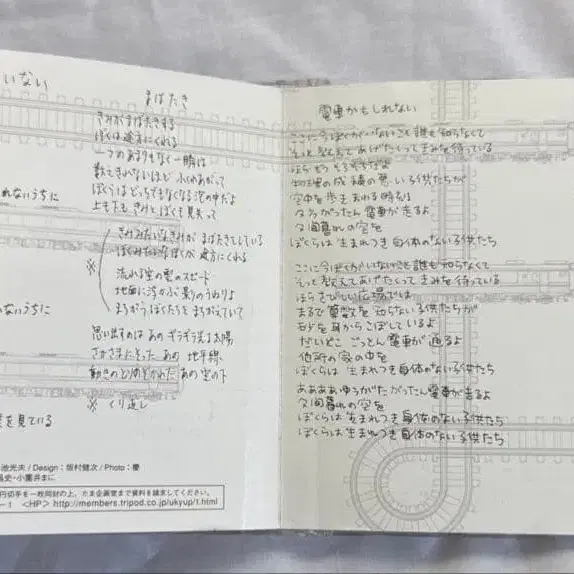 いない
れないうちに
ないうちに
を見ている
まばたき
きみがまばたきする
ぼくは途方にくれる
一つのあまりもなく一瞬は
数えきれないほど ふくれあがって
ぼくらはどっちでもなくなる 泡の中だよ
上も下も きみとぼくも 見失って
※
きみみたいなきみが まばたきをしている
ぼくみたいなぼくが 途方にくれる
流れる空の雲のスピード
地面に浮かぶ影のうねりよ
まちがうぼくたちを まちがえていて
思い出すのは あの ギラギラ光る太陽
さかさまにそった あの 地平線
動きのとりのぞかれた あの空の下
※ くり返し
池光夫 / Design：坂村健次 / Photo：慶
昌史・小園井まに
円切手を一枚同封の上、たま企画室まで資料を請求してください。
－1 <HP> http://members.tripod.co.jp/ukyup/1.html
電車かもしれない
ここに今ぼくがいないこと 誰も知らなくて
そっと教えてあげたくって きみを待っている
ほら もう そろそろだよ
物理の成績の悪い子供たちが
空中を歩きまわる時刻
夕方がったん 電車が走るよ
夕間暮れの空を
ぼくらは 生まれつき 身体のない子供たち
ここに今ぼくがいないこと 誰も知らなくて
そっと教えてあげたくって きみを待っている
ほら さびしい広場では
まるで算数を知らない子供たちが
砂を耳からこぼしているよ
だいどこ ごっとん 電車が通るよ
他所の家の中を
ぼくらは 生まれつき 身体のない子供たち
ああああ ゆうがた がったん 電車が走るよ
夕間暮れの空を
ぼくらは 生まれつき 身体のない子供たち
ぼくらは 生まれつき 身体のない子供たち